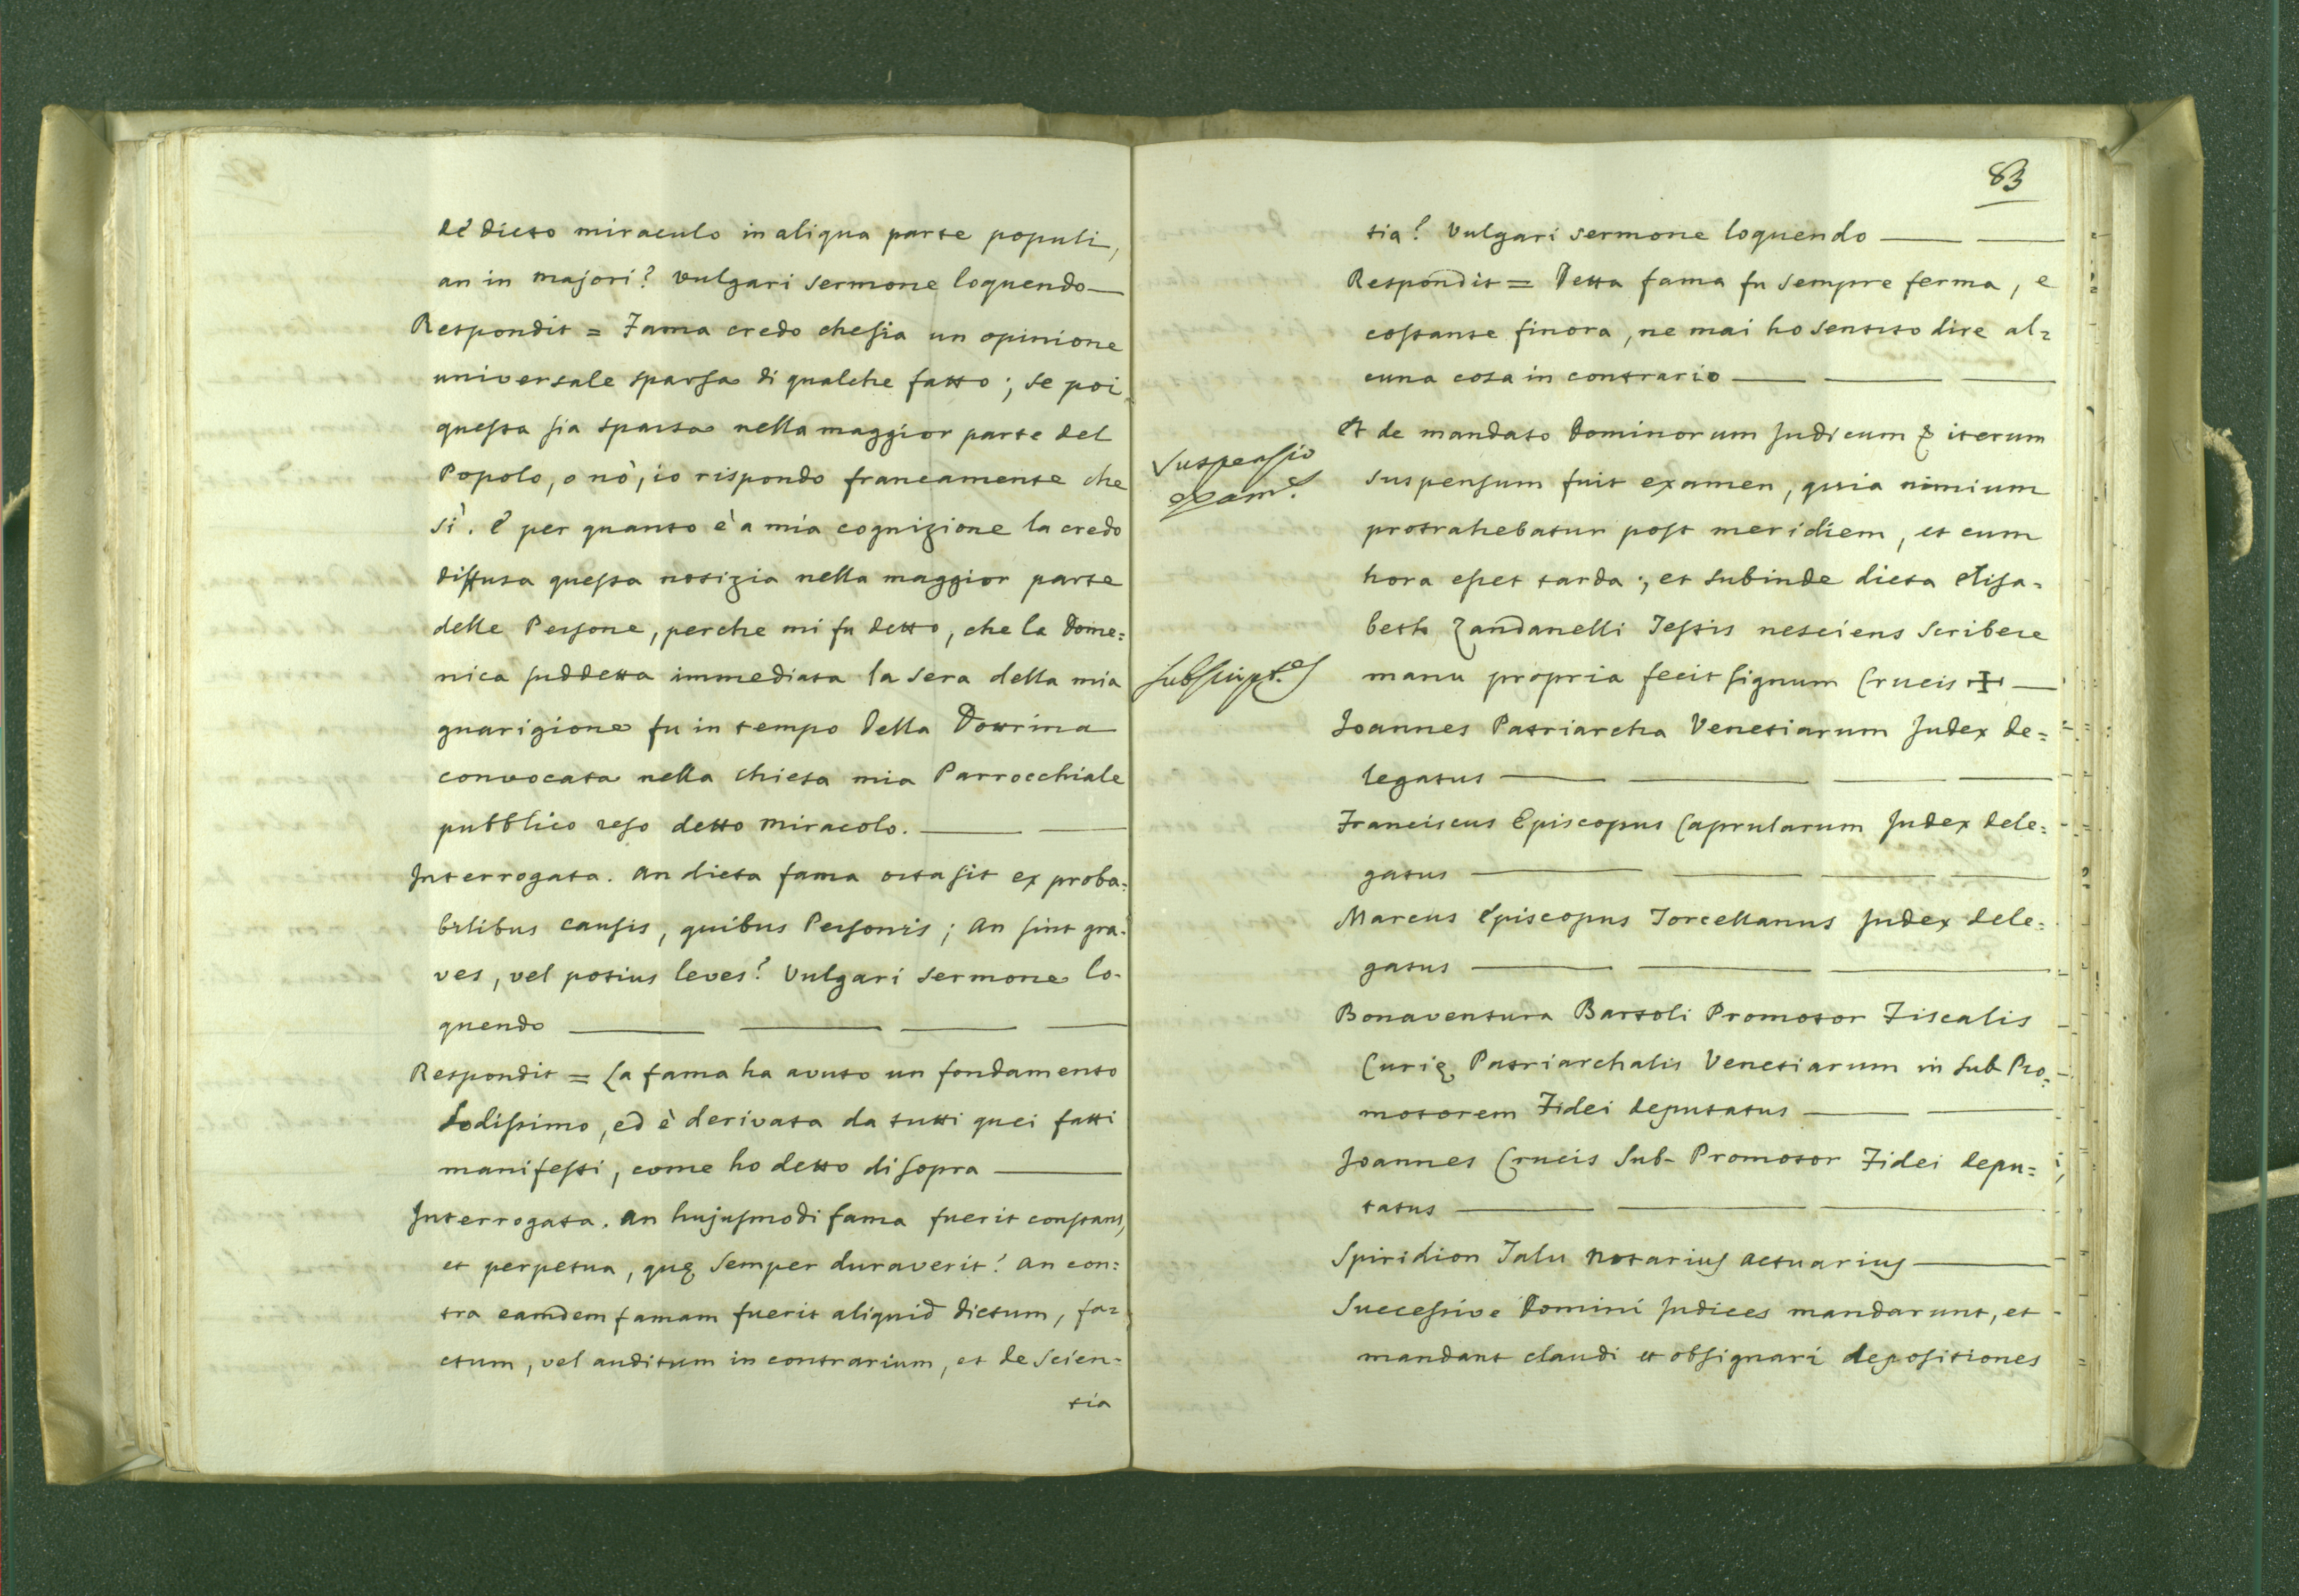 de dicto miraculo in aliqua parte populi,
an in majori? vulgari sermone loquendo —
Respondit = Fama credo che sia un opinione
universale sparsa di qualche fatto; se poi
questa sia sparsa nella maggior parte del
Popolo, o nò, io rispondo francamente che
sì. è per quanto è a mia cognizione la credo
diffusa questa notizia nella maggior parte
delle Persone, perche mi fu detto, che la Dome=
nica suddetta immediata la sera della mia
guarigione fu in tempo della Dottrina
convocata nella chiesa mia Parrocchiale
pubblico reso detto miracolo. — —
Interrogata. an dicta fama orta sit ex proba=
bilibus causis, quibus Personis; an sint gra=
ves, vel potius leves? Vulgari sermone lo-
quendo — — — —
Respondit = La fama ha avuto un fondamento
sodissimo, ed è derivata da tutti quei fatti
manifesti, come ho detto di sopra —
Interrogata. an hujusmodi fama fuerit constans,
et perpetua, quę semper duraverit? an con=
tra eamdem famam fuerit aliquid dictum, fa=
ctum, vel auditum in contrarium, et de scien=
tia
83
tia? Vulgari sermone loquendo — —
Respondit = Detta fama fu sempre ferma, e
costante finora, ne mai ho sentito dire al=
cuna cosa in contrario — — —
Suspensio
exam.s
Et de mandato Dominorum Judicum & iterum
suspensum fuit examen, quia nimium
protrahebatur post meridiem, et cum
hora esset tarda; et subinde dicta Elisa=
beth Zandanelli Testis nesciens scribere
subscript.es
manu propria fecit signum Crucis ✠ —
Joannes Patriarcha Venetiarum Judex de=
legatus — — — —
Franciscus Episcopus Caprularum Judex dele=
gatus — — — —
Marcus Episcopus Torcellanus Judex dele=
gatus — — —
Bonaventura Bartoli Promotor Fiscalis
Curię Patriarchalis Venetiarum in sub Pro=
motorem Fidei deputatus — —
Joannes Crucis Sub-Promotor Fidei depu=
tatus — — —
Spiridion Talu Notarius actuarius —
Successive Domini Judices mandarunt, et
mandant claudi et obsignari depositiones